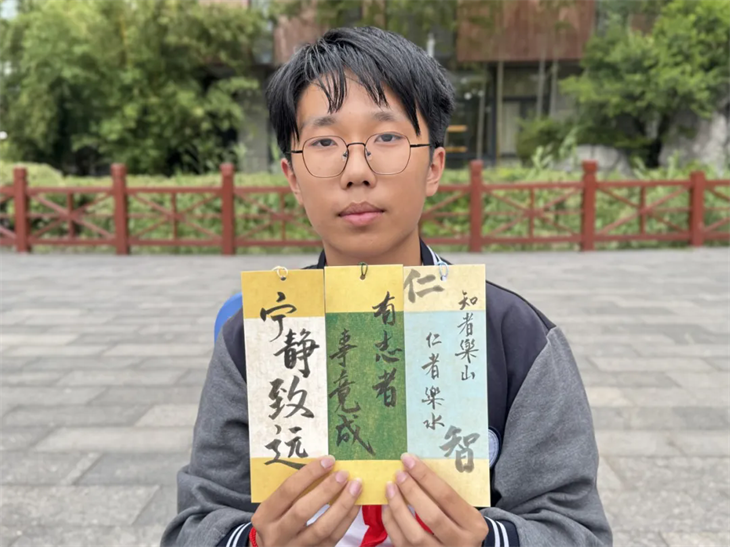 宁静致远
有志者
事竟成
仁
知者樂山
仁者樂水
智